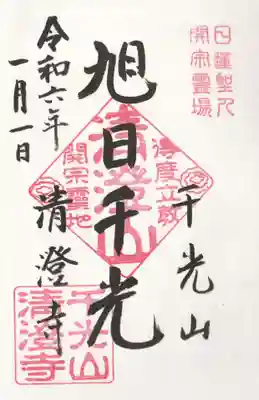 日蓮聖人
開宗霊場
千光山
旭日千光
清澄山
得度立教
開宗霊地
清澄寺
令和六年
一月一日
千光山
清澄寺